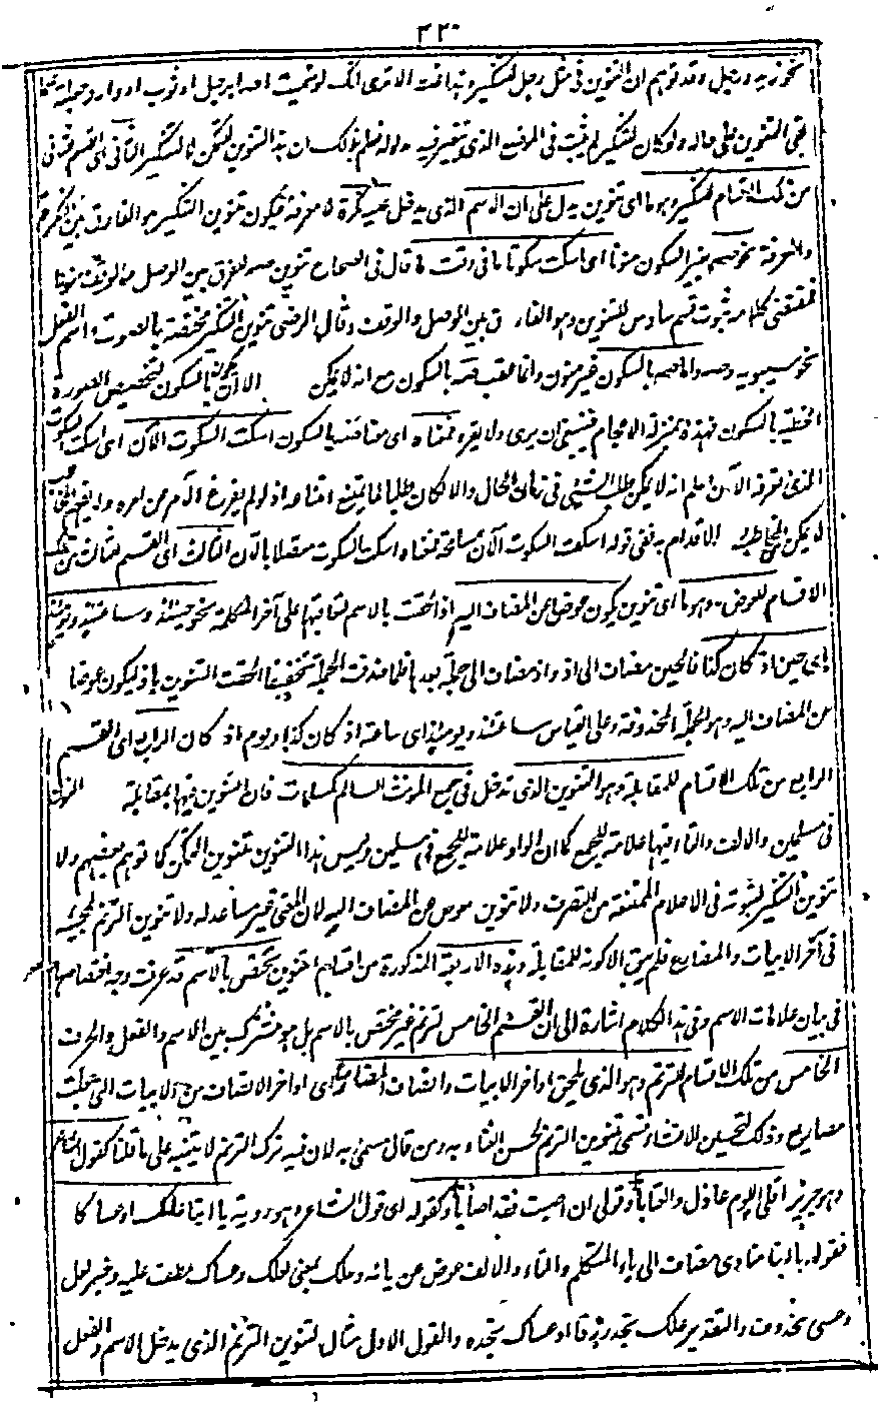 ٣٣٠
نحو زيد ورجل وقد توهم ان التنوين فى مثل رجل لتنكيره وقد انت الا ترى انك لو سميت احدا برجل او ثوب او دار وجعلته علما
بقى التنوين على حاله ولو كان لتنكير لم يثبت فى الموضع الذى يتغير فيه مدلوله فعلم بذلك ان هذا التنوين للتمكن لا للتنكير الثانى اى القسم الثانى
من تلك الاقسام للتنكير وهو ما اى تنوين يدل على ان الاسم الذى يدخل عليه نكرة لا معرفة فيكون تنوين التنكير هو الفارق بين النكرة
والمعرفة نحو صه بغير السكون منونا اى اسكت سكوتا ما فى وقت ما قال فى الصحاح تنوين صه للفرق بين الوصل والوقف
فمقتضى كلامه ثبوت قسم سادس للتنوين وهو الفارق بين الوصل والوقف وقال الرضى تنوين التنكير مختصة بالصوت واسم الفعل
نحو سيبويه وصه واما صه بالسكون غير منون وانما عقب صه بالسكون مع انه لا يكن الا ان يكون بالسكون لتخصيص الصورة
الخطية بالسكون فهذه بمنزلة الاعجام فينبغى ان يرى ولا يقرء فمعناه اى معنا صه بالسكون اسكت السكوت الآن اى اسكت السكوت
الذى تعرفه الآن اعلم انه لا يمكن طلب الشىء فى زمان الحال والا لكان طلبا لما يمتنع اذ لو لم يفرغ الآمر من امره ولا يفهم المخاطب
لا يمكن للمخاطب الاقدام به فمعنى قوله اسكت السكوت الآن مسامحة فمعناه اسكت بالسكوت متصلا بالآن الثالث اى القسم الثالث من تلك
الاقسام للعوض وهو ما اى تنوين يكون عوضا عن المضاف اليه اذا لحقت بالاسم لتعاقبها على آخر الكلمة نحو حينئذ وساعتئذ ويومئذ
اى حين اذ كان كذا فالحين مضاف الى اذ واذ مضاف الى جملة بعدها فلما حذفت الجملة تخفيفا الحقت التنوين باذ ليكون عوضا
عن المضاف اليه وهو الجملة المحذوفة وعلى القياس ساعتئذ ويومئذ اى ساعة اذ كان كذا ويوم اذ كان الرابع اى القسم
الرابع من تلك الاقسام للمقابلة وهو التنوين الذى تدخل فى جمع المونث السالم كمسلمات فان التنوين فيها بمقابلة النون
فى مسلمين والالف والتاء فيها علامة للجمع كما ان الواو علامة للجمع فى مسلمين وليس هذا التنوين تنوين التمكن كما توهم بعضهم ولا
تنوين التنكير لثبوته فى الاعلام الممتنعة من الصرف ولا تنوين عوض عن المضاف اليه لان المعنى غير مساعد له ولا تنوين الترنم لمجيئه
فى آخر الابيات والمصاريع فلم يبق الا كونه للمقابلة وهذه الاربعة المذكورة من اقسام التنوين تختص بالاسم قد عرفت وجه اختصاصها
فى بيان علامات الاسم وفى هذا الكلام اشارة الى ان القسم الخامس لترنم غير مختص بالاسم بل هو مشترك بين الاسم والفعل والحرف
الخامس من تلك الاقسام للترنم وهو الذى يلحق اواخر الابيات وانصاف المصاريع اى اواخر الانصاف من الابيات التى جعلت
مصاريع وذلك لتحسين الانشاد وتسمى تنوين الترنم لحسن الغناء به ومن قال سمى به لان فيه ترك الترنم لا يتنبه على ما قلنا كقول الشاعر
وهو جرير اقلى اللوم عاذل والعتابا وقولى ان اصبت فقد اصابا وكقوله اى قول الشاعر وهو روبة يا ابتا علك او عساكا
فقوله يا ابتا منادى مضاف الى ياء المتكلم والتاء والالف عوض عن يائه وعلك بمعنى لعلك وعساك عطف عليه وخبر لعل
وعسى محذوف والتقدير علك تجد رزقا او عساك تجده والقول الاول مثال لتنوين الترنم الذى يدخل الاسم والفعل